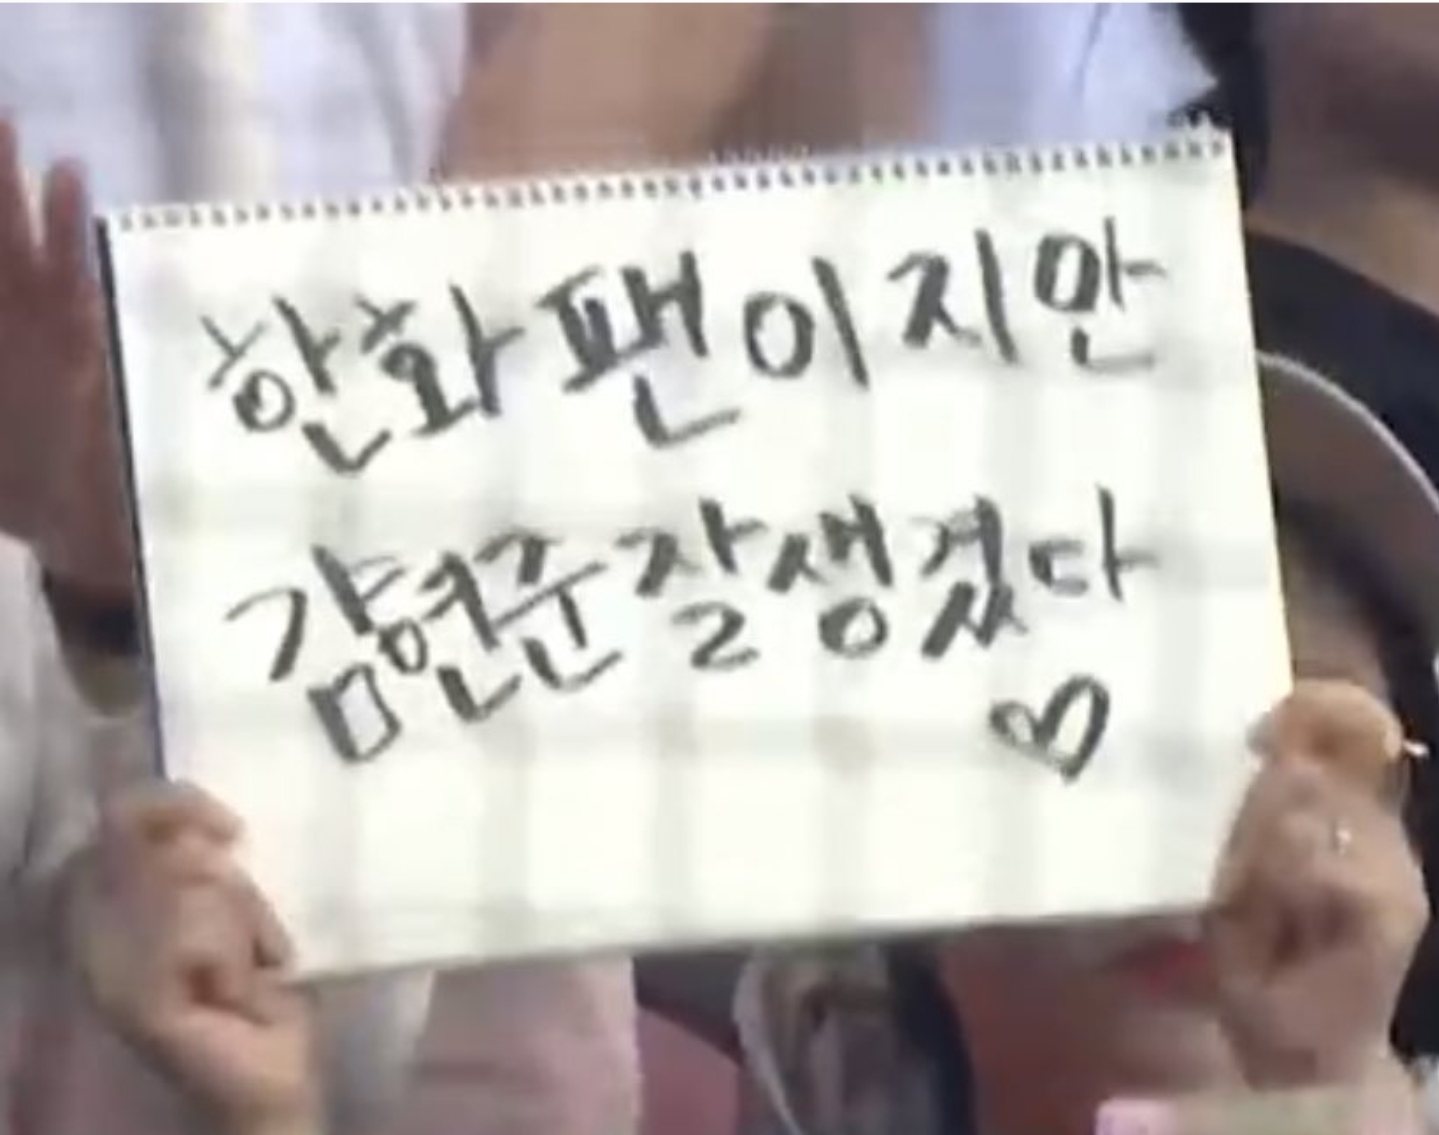 한화 팬이지만
김현준 잘생겼다
♡